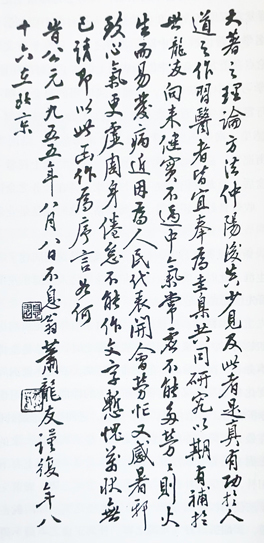 大著之理論方法仲陽後真少見及此者是真有功於人
道之作習醫者皆宜奉為圭臬共同研究以期有補於
世龍友向來健實不過中氣常虛不能多勞勞則火
生而易發病近因為人民代表開會勞忙又感暑邪
致心氣更虛周身倦怠不能作文字慙愧萬狀無
已請即以此函作為序言如何
時公元一九五五年八月八日不息翁蕭龍友謹復年八
十六在北京